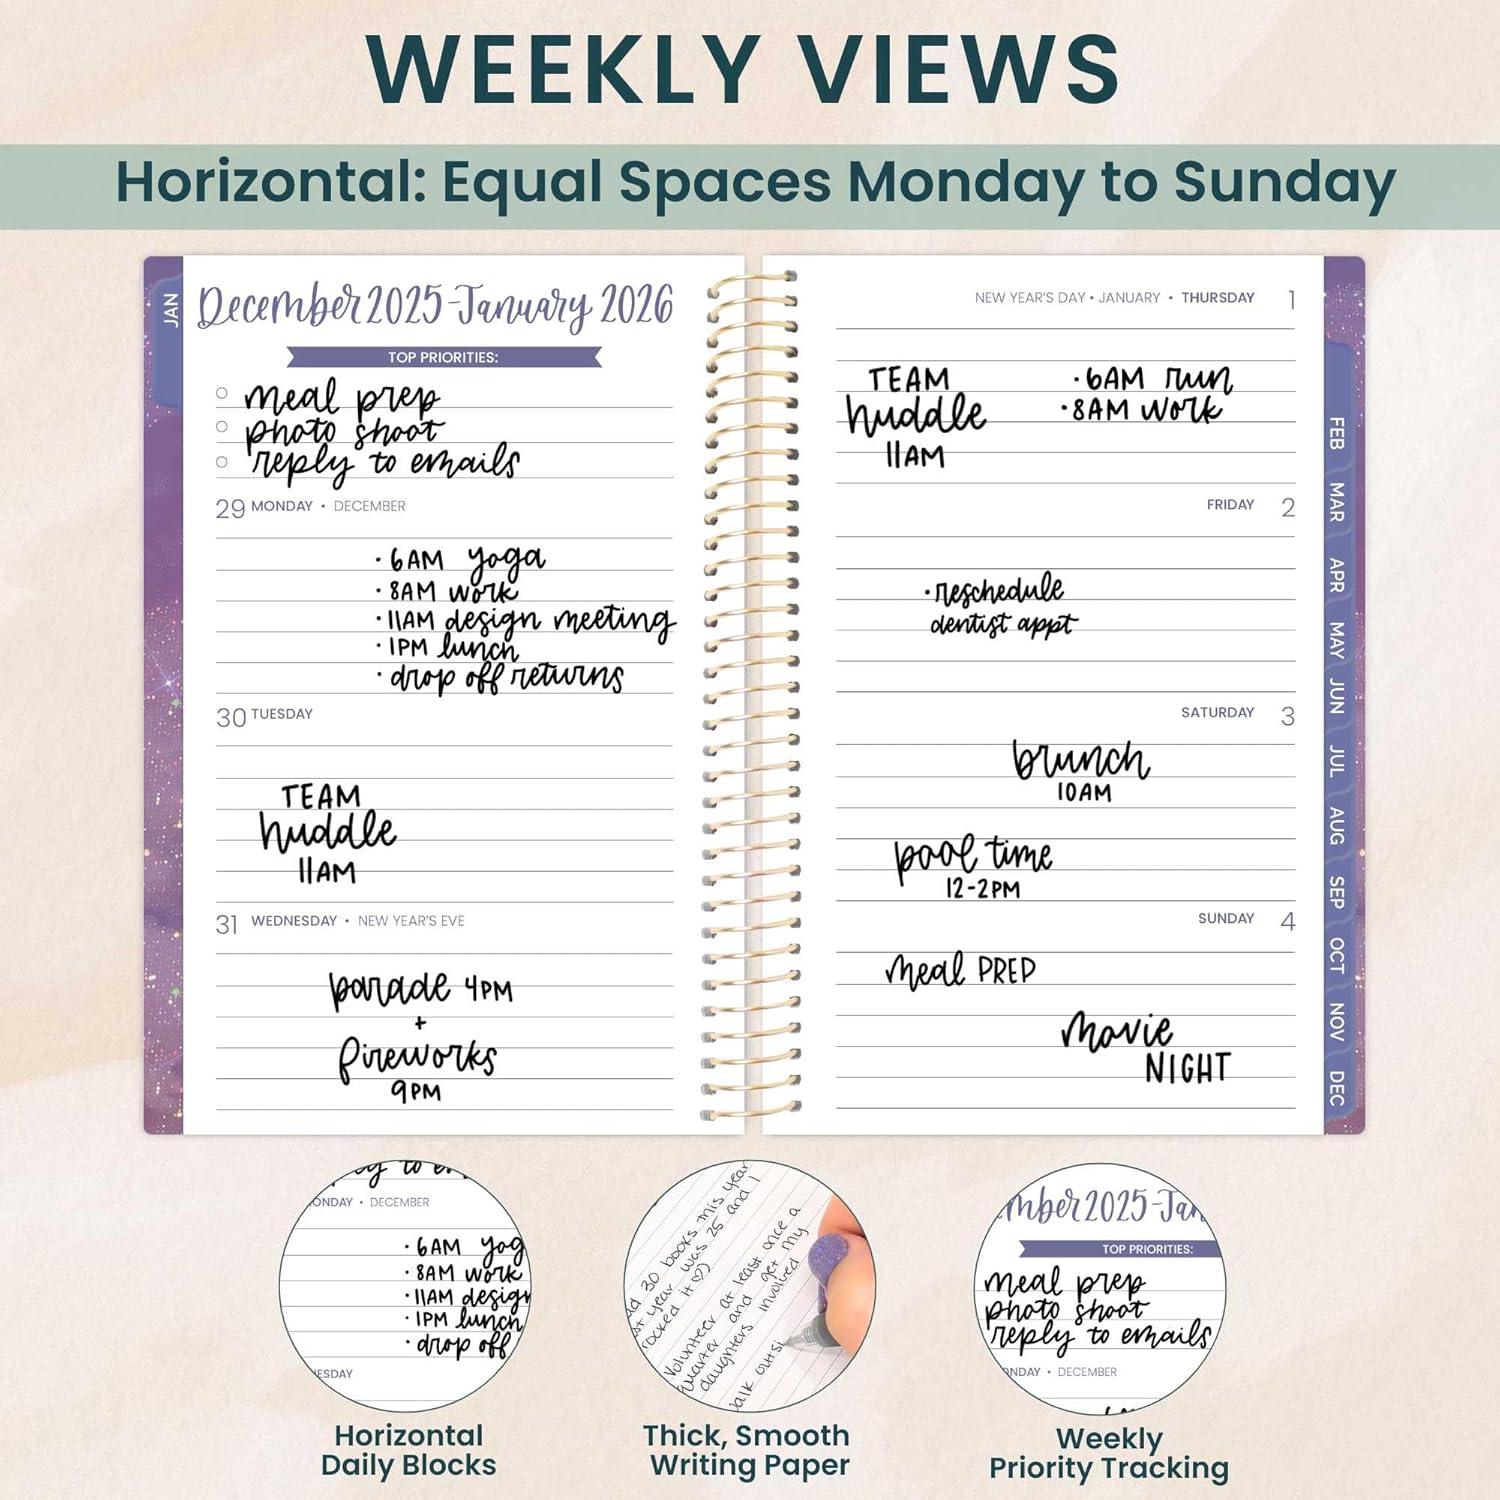 WEEKLY VIEWS
Horizontal: Equal Spaces Monday to Sunday
JAN
December 2025-January 2026
TOP PRIORITIES:
meal prep
photo shoot
reply to emails
29 MONDAY • DECEMBER
• 6AM yoga
• 8AM work
• 11AM design meeting
• 1PM lunch
• drop off returns
30 TUESDAY
TEAM
huddle
11AM
31 WEDNESDAY • NEW YEAR'S EVE
parade 4PM
+
fireworks
9PM
NEW YEAR'S DAY • JANUARY • THURSDAY 1
TEAM
huddle
11AM
• 6AM run
• 8AM work
FRIDAY 2
• reschedule
dentist appt
SATURDAY 3
brunch
10AM
pool time
12-2PM
SUNDAY 4
meal PREP
Movie
NIGHT
FEB
MAR
APR
MAY
JUN
JUL
AUG
SEP
OCT
NOV
DEC
to
ONDAY • DECEMBER
• 6AM yog
• 8AM work
• 11AM design
• 1PM lunch
• drop off
ESDAY
Horizontal
Daily Blocks
30 books this year
year was 25 and I
rocked it
Volunteer at least once a
quarter and get my
daughters involved
alk outsi
Thick, Smooth
Writing Paper
mber 2025-Jan
TOP PRIORITIES:
meal prep
photo shoot
reply to emails
ONDAY • DECEMBER
Weekly
Priority Tracking